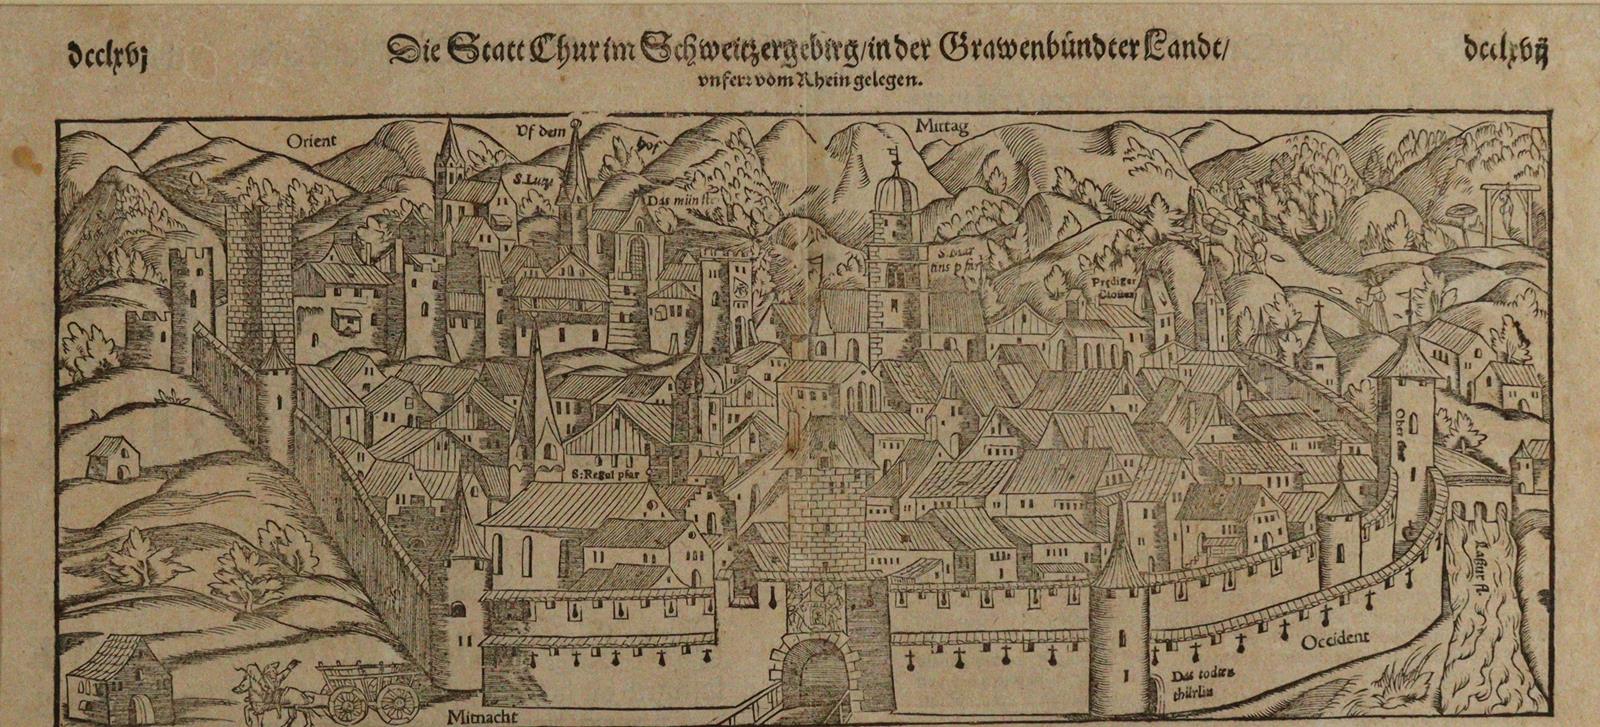 dcclxvj
Die Statt Chur im Schweitzergebirg/in der Grawenbündter Landt/
dcclxvij
vnferr vom Rhein gelegen.
Orient
Vf dem
hof
Mittag
S. Lutzi
Das münster
S. Mar
tins pfar
Prediger
Closter
Ober thor
S: Regul pfar
Occident
Das todten
thürlin
Mitnacht